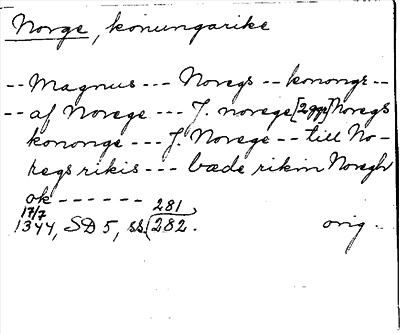 Norge, konungarike
-- Magnus --- Noregs -- konongr --
-- af Norege --- J. norege [2 ggr] Noregs
kononge --- J. Norege -- till No-
regs rikis --- bæde rikin Noregh
ok ------
17/7 1344, SD 5, ss. 281, 282. orig.